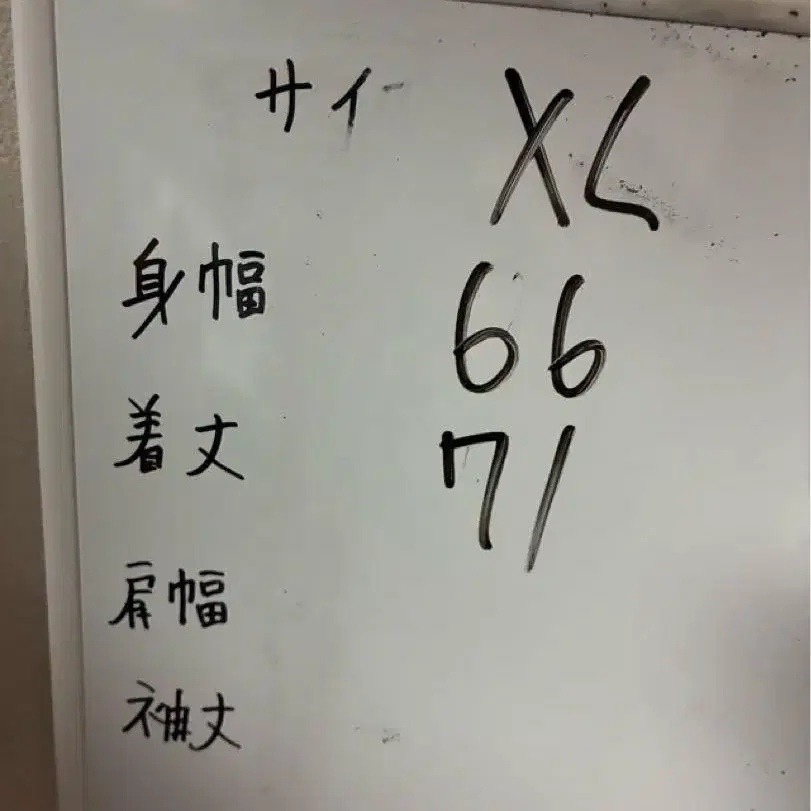 サイー XL
身幅 66
着丈 71
肩幅
袖丈